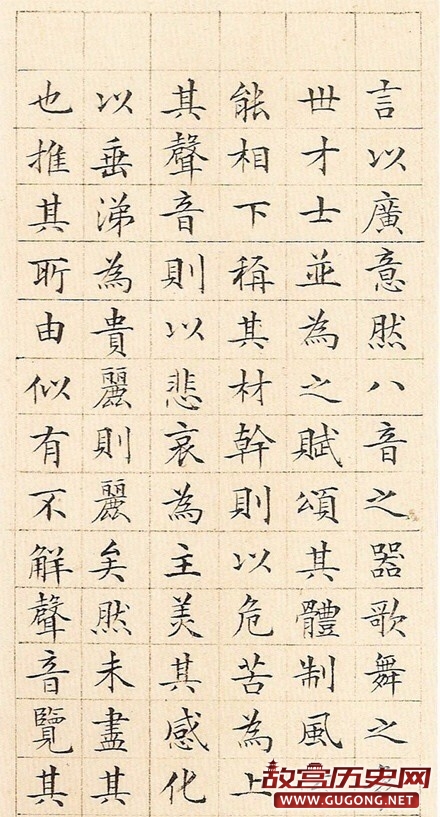 言以廣意然八音之器歌舞之
世才士並為之賦頌其體制風
能相下稱其材幹則以危苦為上
其聲音則以悲哀為主美其感化
以垂涕為貴麗則麗矣然未盡其
也推其所由似有不解聲音覽其
故宫历史网
WWW.GUGONG.NET